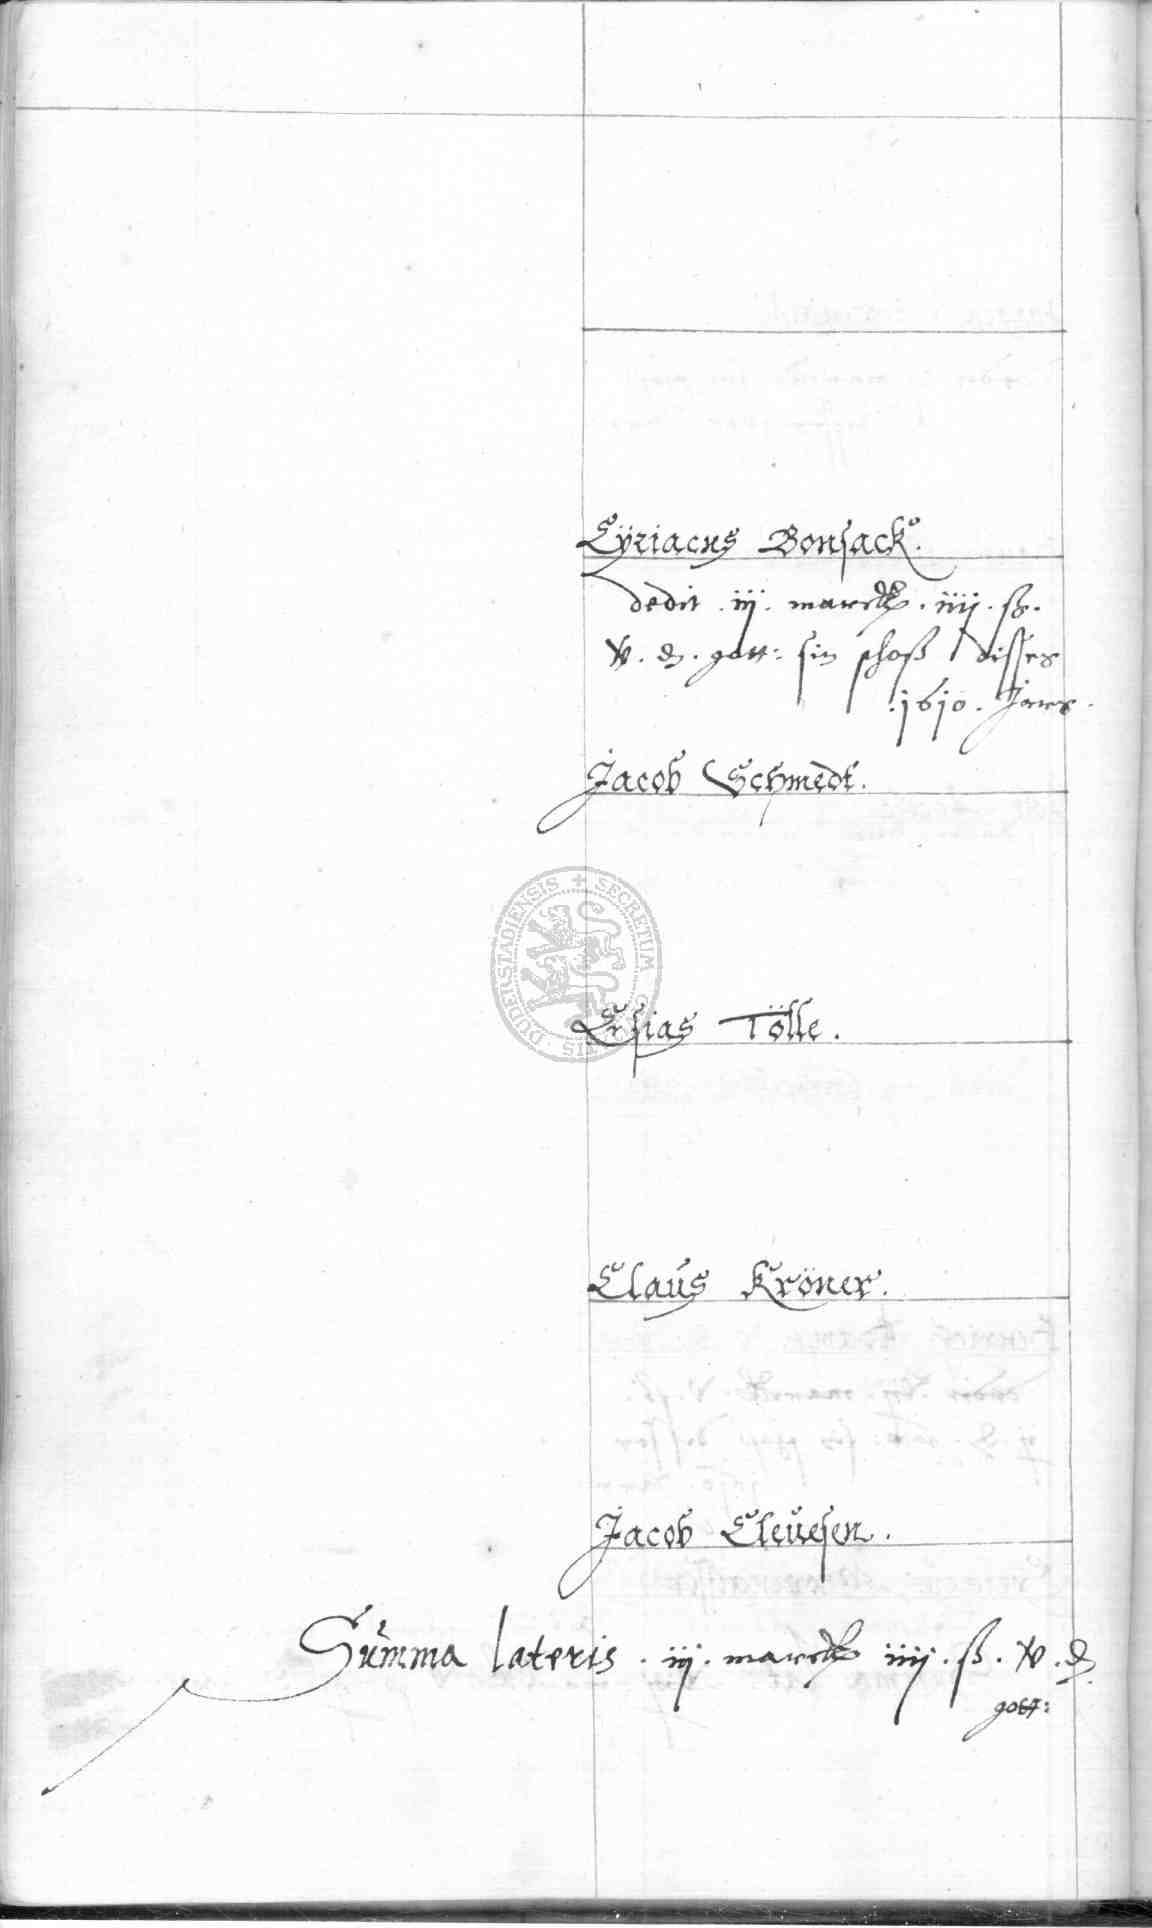 Cÿriacus Bonsack.
dedit . iij . marck . iiij . ß .
v . d . gott : sin schoß disses
. 1610 . Jars .
Jacob Schmedt .
SECRETUM DUDERSTADIENSIS
Esias Tölle .
Claus Kröner .
Jacob Cleuesen .
Summa lateris . iij . marck iiij . ß . v . d
gott :